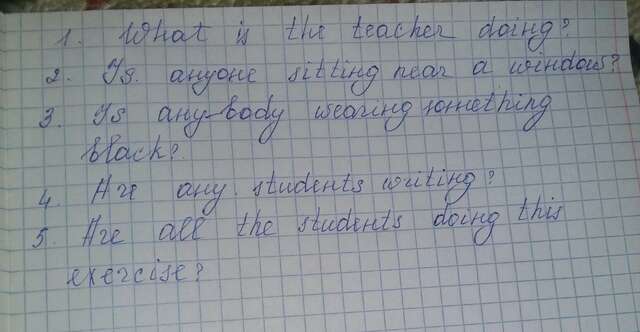 1. What is the teacher doing?
2. Is anyone sitting near a window?
3. Is any-body wearing something
black?
4. Are any students writing?
5. Are all the students doing this
exercise?